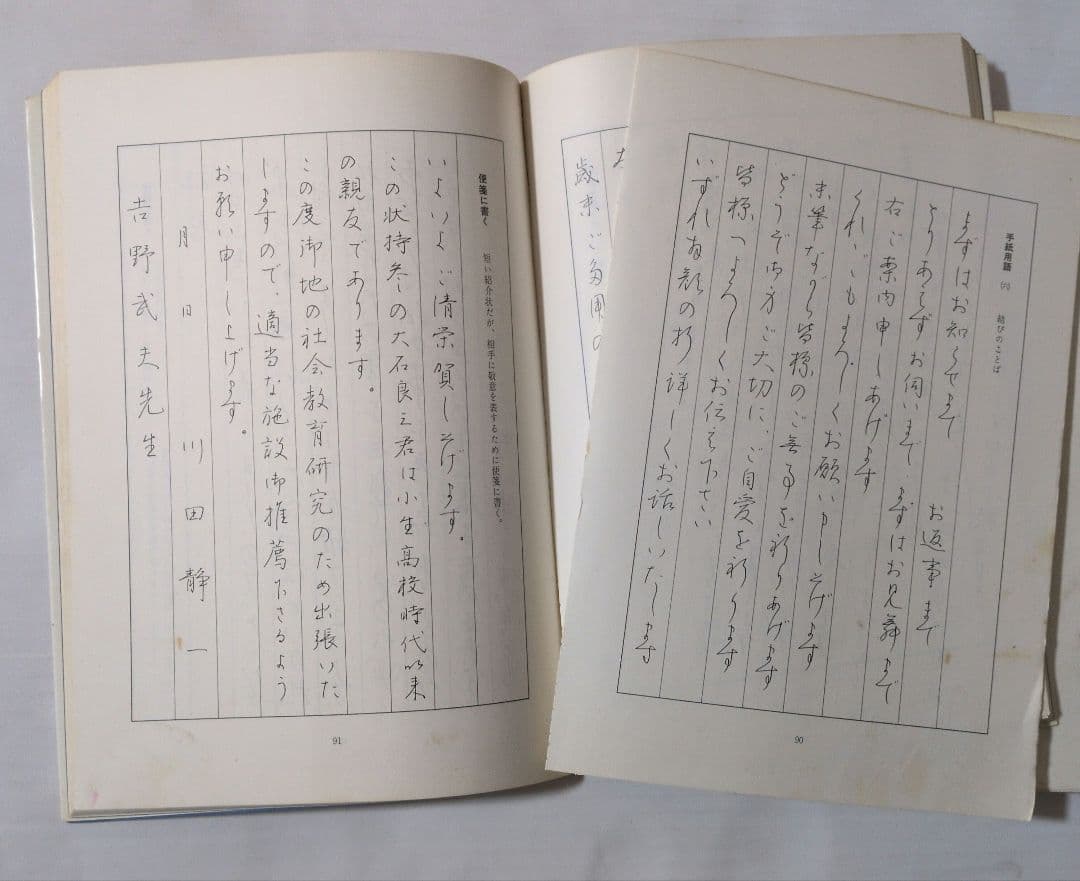 手紙用語 (六) 結びのことば
まずはお知らせまで お返事まで
とりあえずお伺いまで まずはお見舞まで
右ご案内申しあげます
くれぐれもよろしくお願い申し上げます
末筆ながら皆様のご無事を祈りあげます
どうぞ御身ご大切に、ご自愛を祈ります
皆様へよろしくお伝え下さい
いずれ拝顔の折詳しくお話しいたします
歳末ご多用の
90
便箋に書く 短い紹介状だが、相手に敬意を表するために便箋に書く。
いよいよご清栄賀し上げます。
この状持参の大石良三君は小生高校時代以来
の親友であります。
この度御地の社会教育研究のため出張いた
しますので、適当な施設御推薦下さるよう
お願い申し上げます。
月 日 川田静一
吉野武夫先生
91